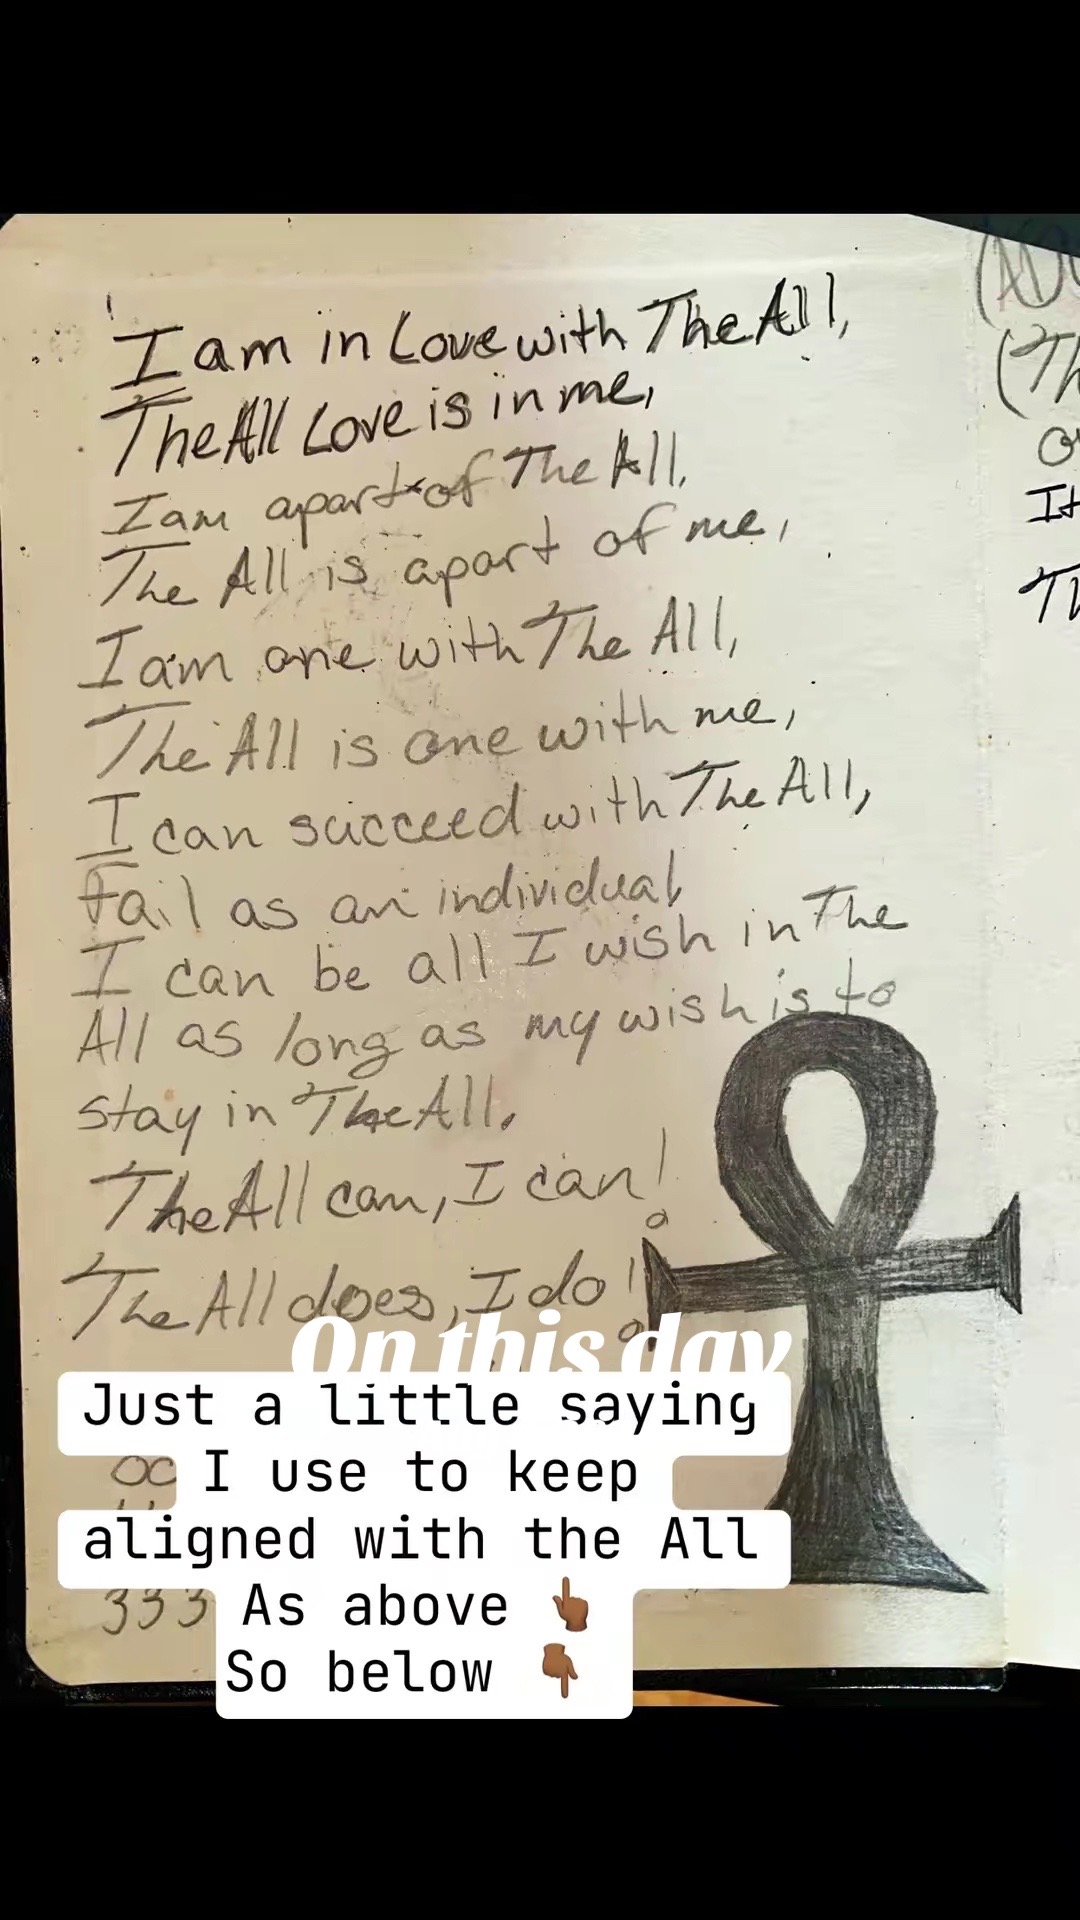 I am in Love with The All,
The All Love is in me,
I am apart of The All,
The All is apart of me,
I am one with The All,
The All is one with me,
I can succeed with The All,
Fail as an individual
I can be all I wish in The
All as long as my wish is to
stay in The All.
The All can, I can!
The All does, I do!
On this day
Just a little saying
I use to keep
aligned with the All
As above 👆🏾
So below 👇🏾
333
(Th
It
Th